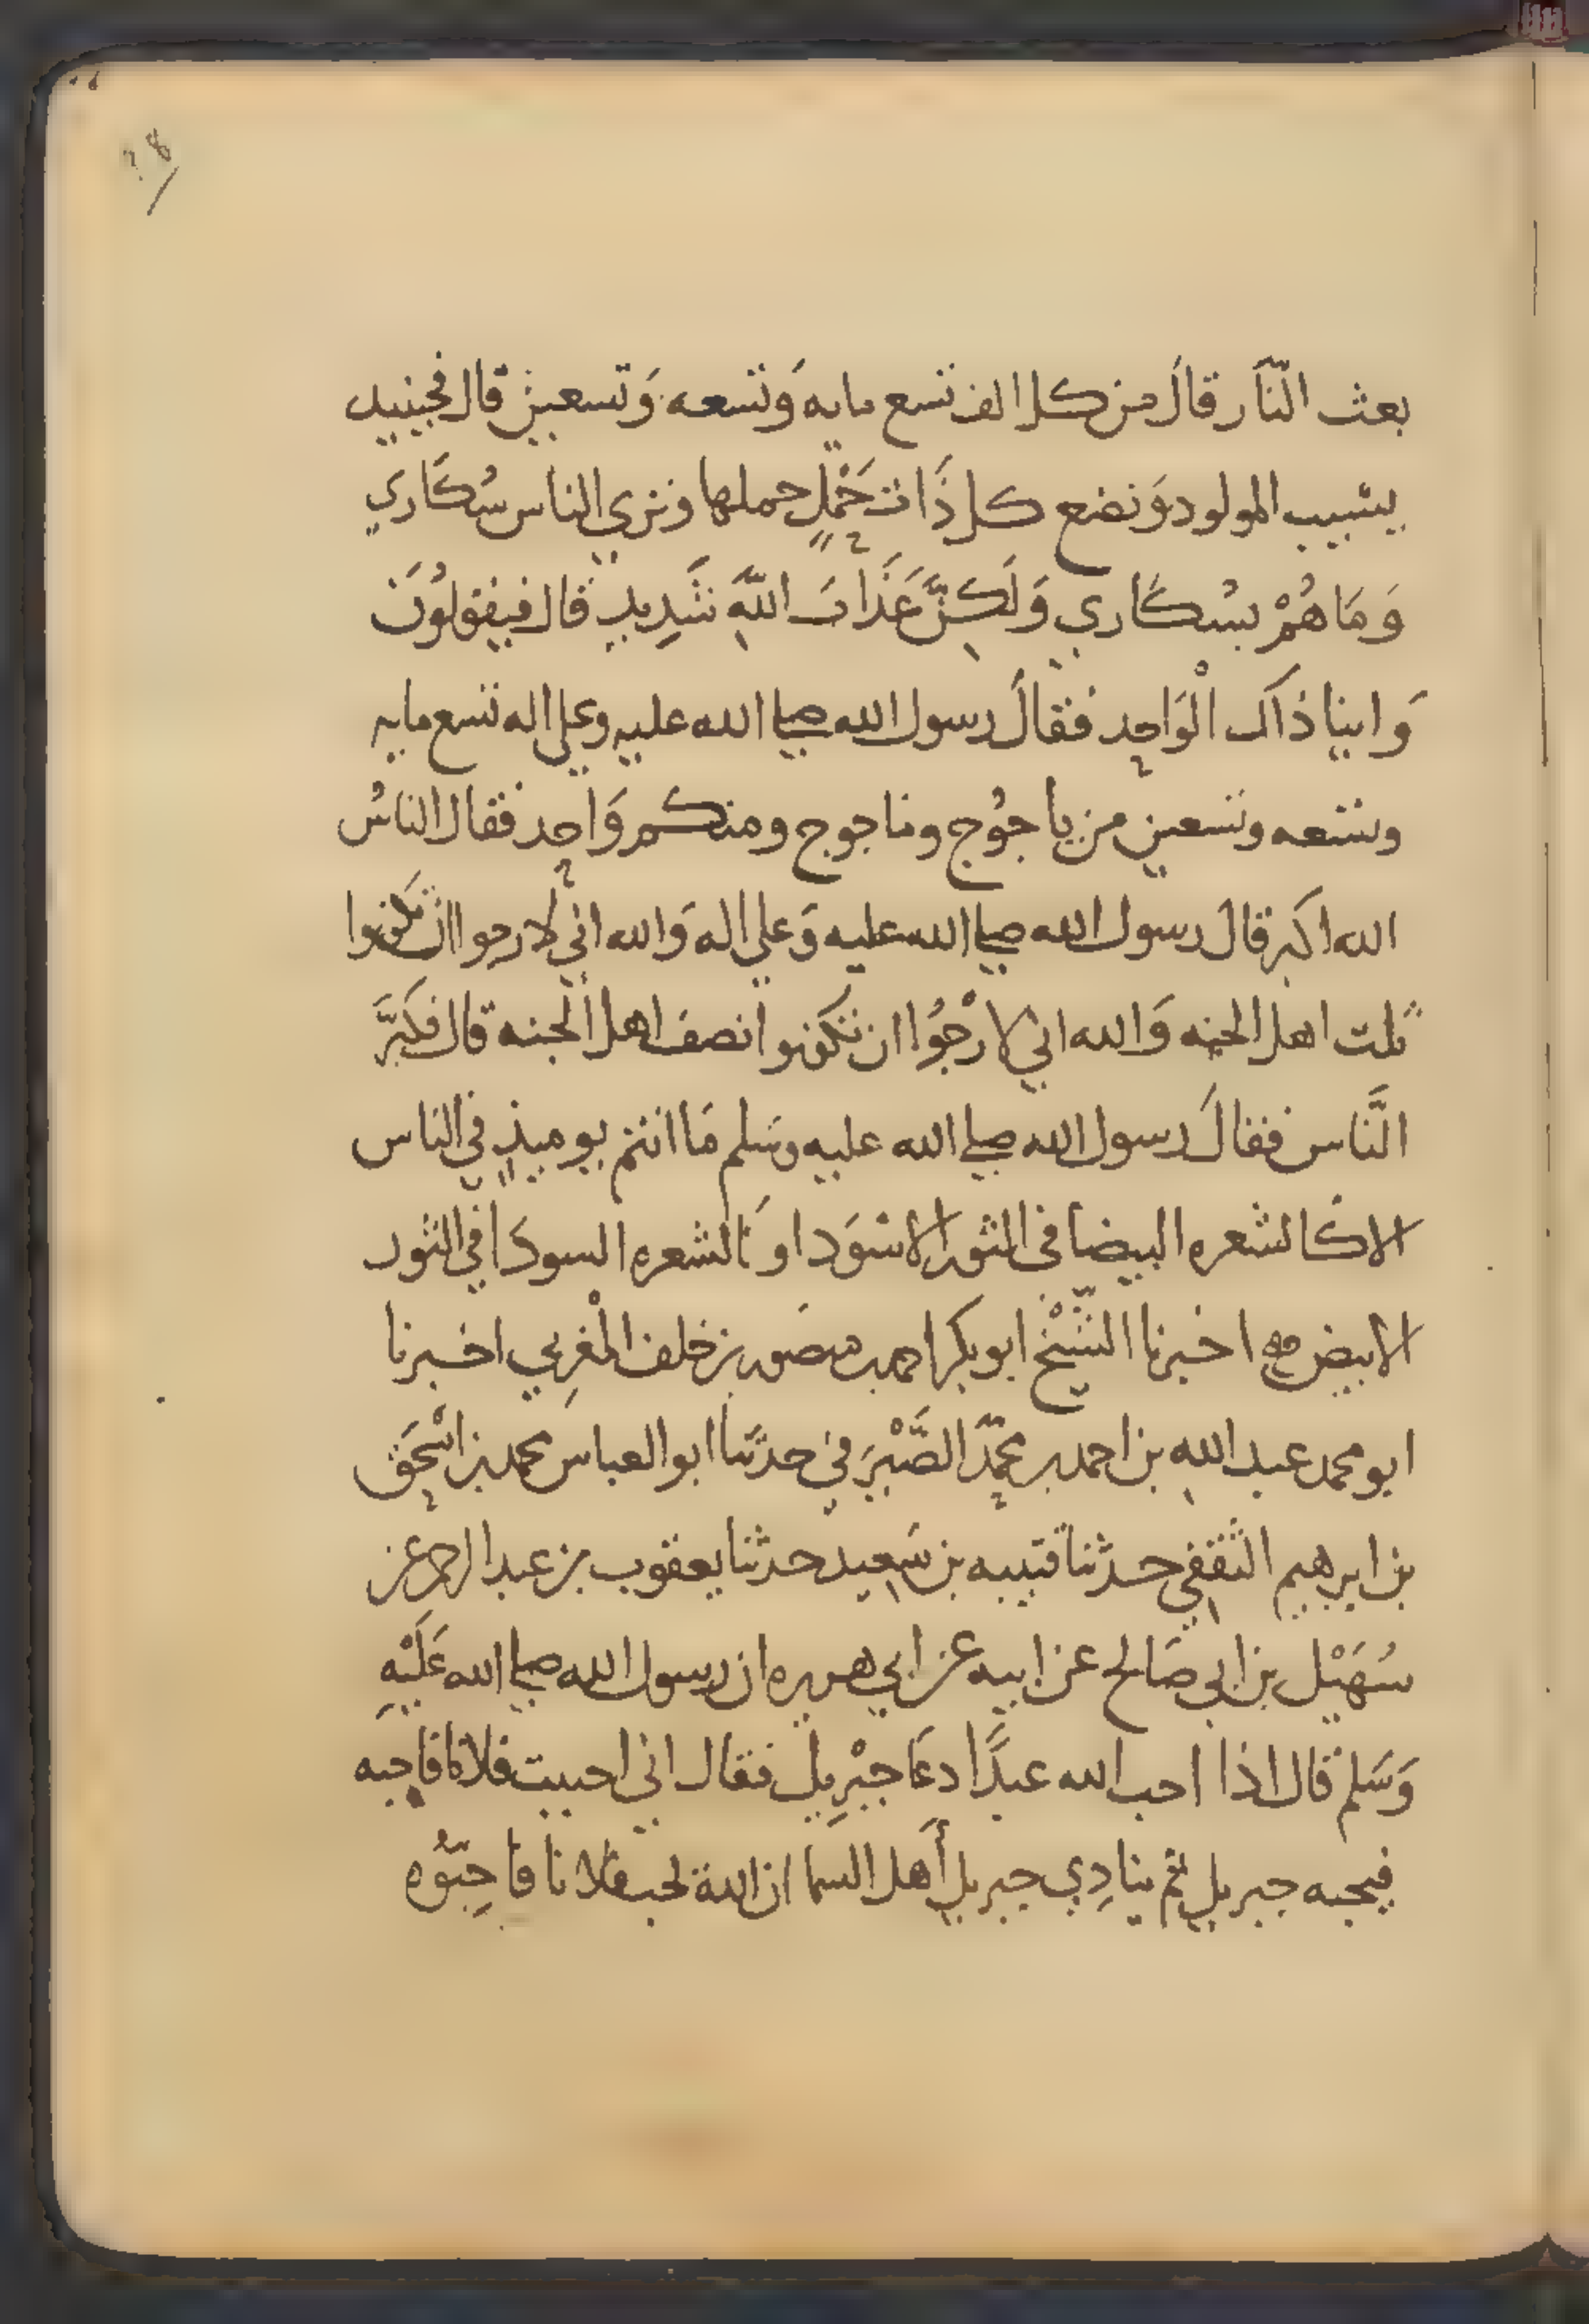 ٢٨
بعث النَّار قالَ من كل الف تسع مايه وَتسعه وَتسعين قال فحينيد
يشيب المولود وَتضع كل ذَات حَمْلٍ حملها وتري الناس سُكَاري
وَمَا هُمْ بسُكاري وَلَكِنَّ عَذَابَ اللَّهِ شَدِيد قال فيقولُونَ
وَاينا ذاكَ الْوَاحِد فقالَ رسول الله صلى الله عليه وعلى اله تسع مايه
وتسعه وتسعين من ياجوُج وماجوج ومنكم وَاحِد فقال الناسُ
الله اكبر قال رسول الله صلى الله عليه وَعلى اله وَالله اني لارجوا ان تكونوا
ثلث اهل الجنه وَالله اني لارْجُوا ان تكونوا نصف اهل الجنه قال فكَبَّرَ
النَّاس فقالَ رسول الله صلى الله عليه وسَلم مَا انتم يوميذٍ في الناس
الا كالشعره البيضا في الثور الاسْوَد او كالشعره السودَا في الثور
الابيض اخبرنا الشَّيْخ ابو بكر احمد بن منصَور بن خلف المْغرِبي اخبرنا
ابو محمد عبد اللهِ بن احمد بن محمَّد الصَّيْرَفي حدَّثنا ابو العباس محمد بن اسْحَق
بن ابرهيم الثَقفِي حدثنا قتيبه بن سَعِيد حدثنا يعقوب بن عبد الرحمن عن
سُهَيْل بن ابي صَالح عن ابيه عن ابي هريره ان رسول الله صلى الله عَلَيْهِ
وَسَلم قال اذا احب الله عبدًا دعَا جبْرِيل فقال اني احببت فلانا فاحِبه
فيحبه جبريل ثم ينادِي جبريل أَهل السما ان الله يحب فلانا فاحِبّوُه